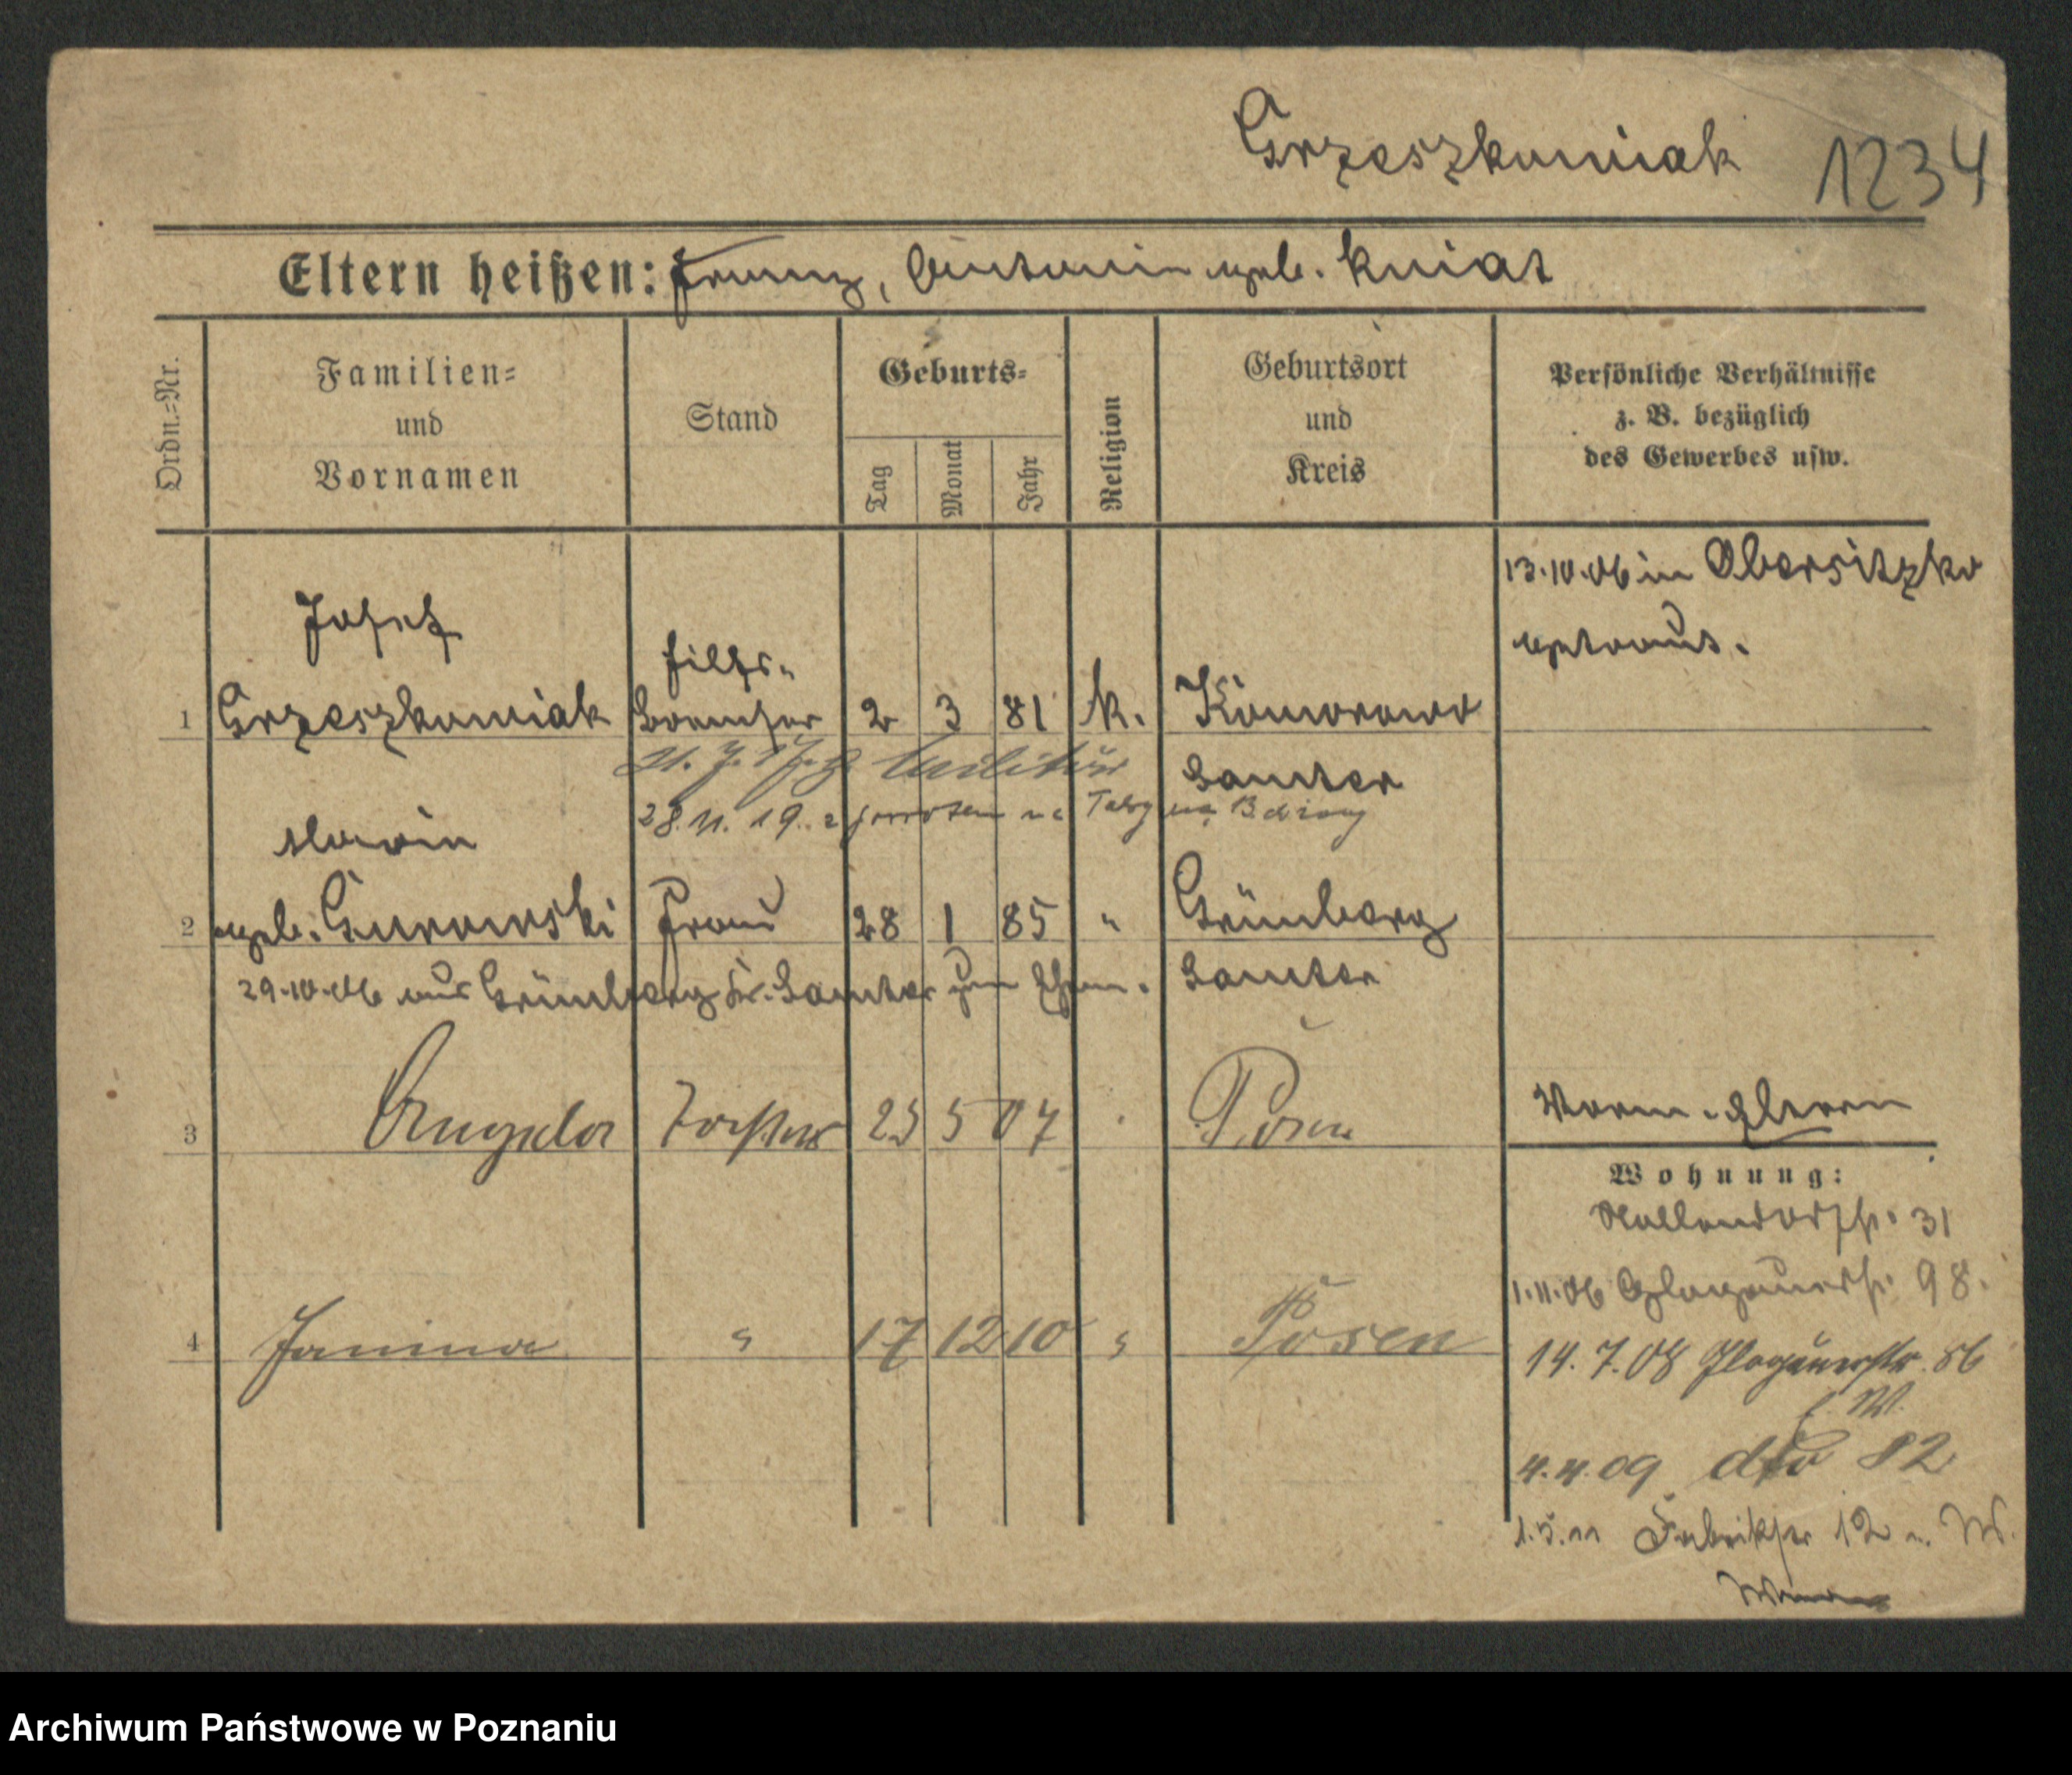 Grzeszkowiak 1234
Eltern heißen: Franz, Antonie geb. Kniat
Ordn.=Nr.
Familien=
und
Vornamen
Stand
Geburts=
Tag
Monat
Jahr
Religion
Geburtsort
und
Kreis
Persönliche Verhältnisse
z. B. bezüglich
des Gewerbes usw.
13.10.06 in Obersitzko
getraut.
Josef
Hilfs-
1 Grzeszkowiak Bremser 2 3 81 k. Komorowo
Militär Samter
28. 11. 19.
Maria
2 geb. Gurowski Frau 28 1 85 " Grünberg
29.10.06 aus Grünberg Kr. Samter zum Ehem. Samter
3 Angela Tochter 25 5 07 Posen
4 Janina " 17 12 10 " Posen
Wohnung:
Nollendorfstr. 31
1.11.06 Glogauerstr. 98.
14. 7. 08 Glogauerstr. 86
W.
4.4.09 dto 82
1.5.11 Fabrikstr 12 W.
Archiwum Państwowe w Poznaniu